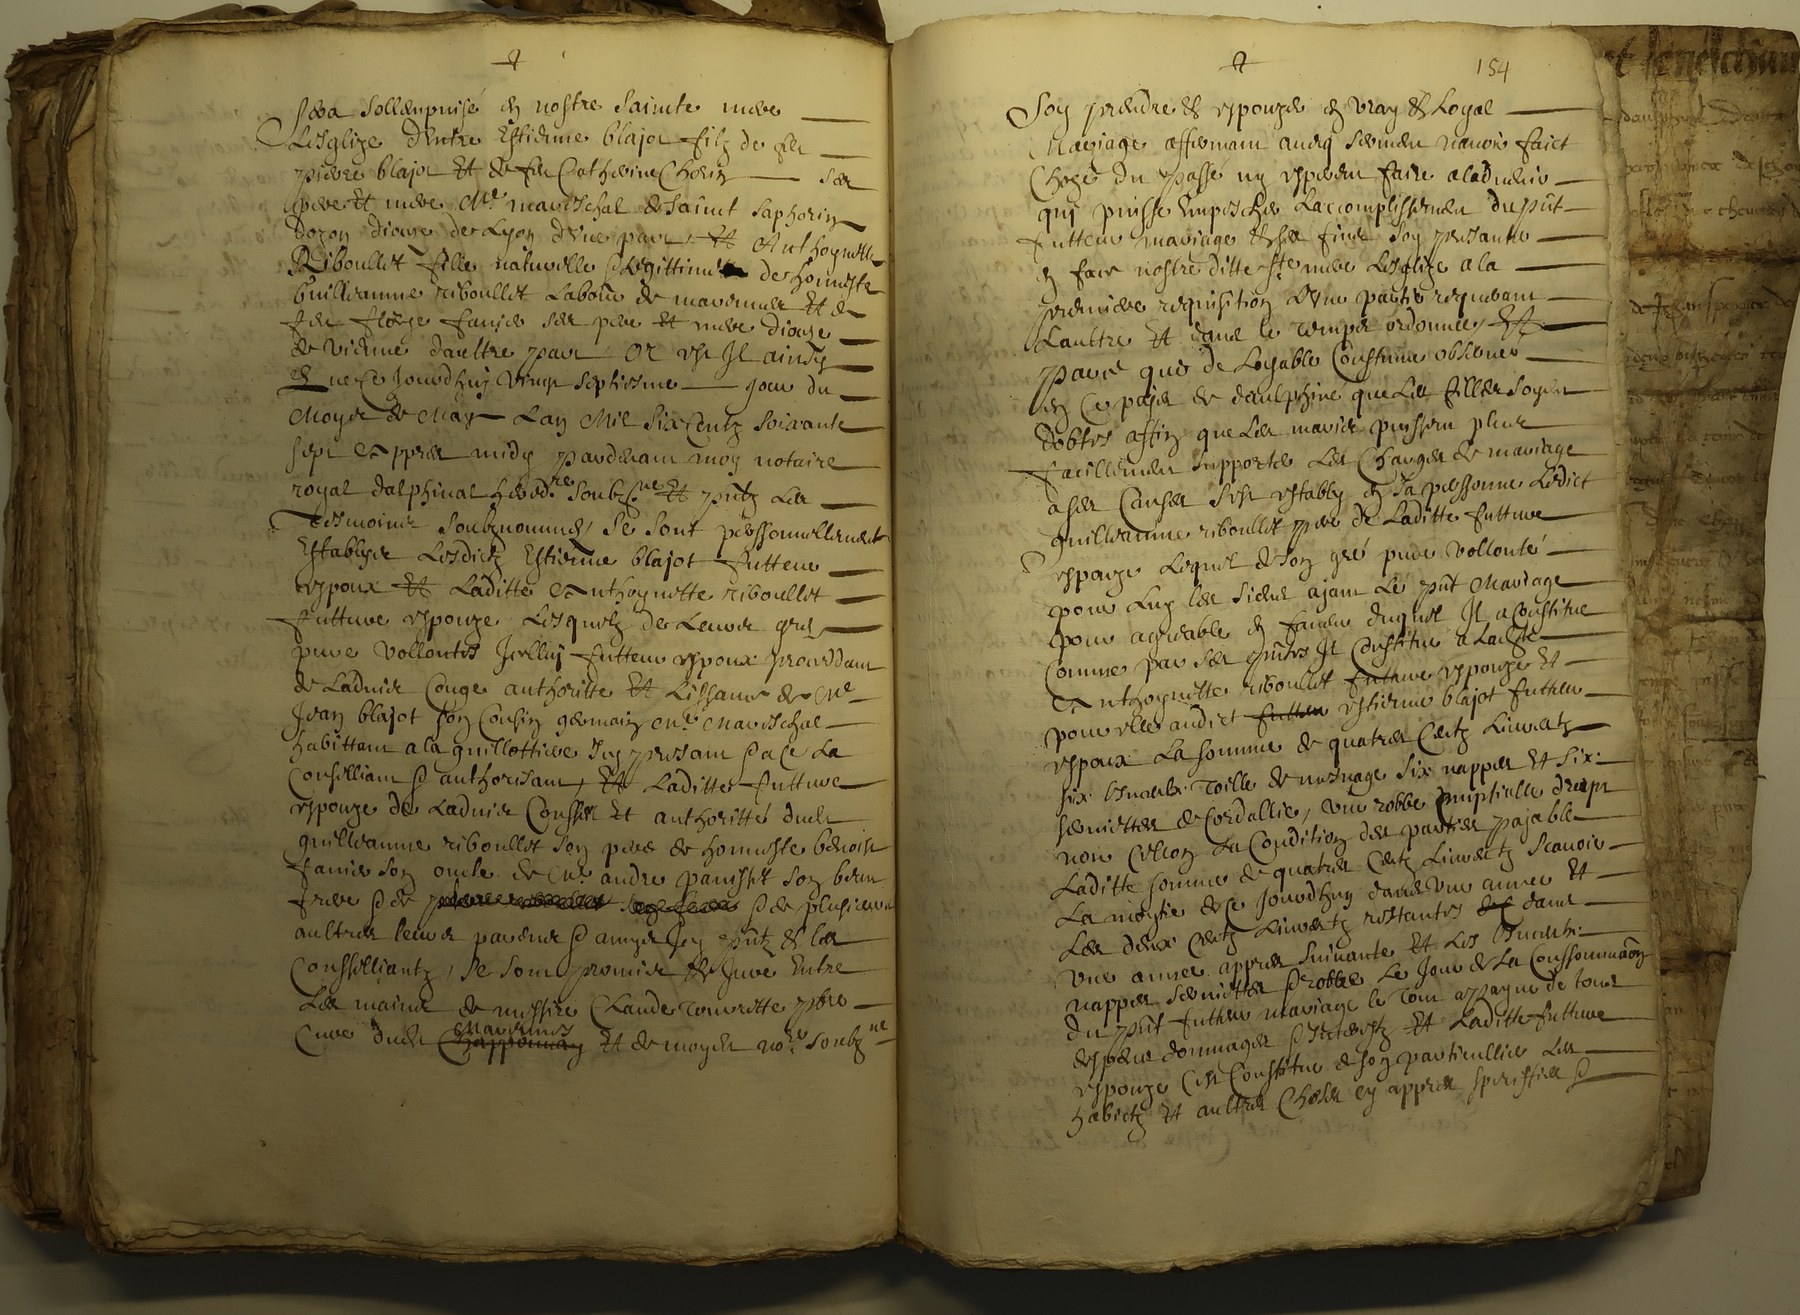 sera sollempnisé en nostre saincte mere
Lesglize Entre Estienne blajot filz de feu
pierre blajot Et de feu Catherine Chorin ses
pere Et mere Me mareschal de sainct saphorin
dozon dioceze de Lyon d'Une part Et Anthoynette
Riboullet fille naturelle & legittime de honneste
Guilleaume riboullet Labour de marennes Et de
feu fleurye fanier ses pere Et mere dioceze
de vienne daultre part Or est Il ainsy
que Ce Jourdhuy Vingt septiesme jour du
Moys de May Lan Mil Six Centz Soixante
sept Et appres midy pardevant moy notaire
royal dalphinal hered.re soubz.ne Et pntz Les
Tesmoins soubznommes se sont personnellement
Establys Lesdictz Estienne blajot futteur
espoux Et Laditte Anthoynette riboullet
futture espouze Lesquelz de Leurs gres
pure vollontes Icelluy futteur espoux procedant
de Ladvis Conge authoritte Et Lissance de Me
Jean blajot son Cousin germain me mareschal
habittant a la guillottiere Icy present & a Ce La
Conseilliant & authorisant, Et Laditte futture
espouze de Ladvis Conseil Et authoritté dudt
guilleaume riboullet son pere de honneste benoist
fanier son oncle de Me andre panisset son beau
frere & de & de plusieurs
aultres leurs parens & amys Icy pntz & les
Conseilliantz, se sont promis & Jure Entre
Les mains de messire Claude tourrette pbre
Cure dudt marennes Et de moydt no.re soubz.ne
154
Soy prendre & espouzer en vray & Loyal
Mariage affirmant avecq serment navoir faict
Choze du passé ny esperer faire a ladvenir
qui puisse Empescher Laccomplissement du pnt
futteur mariage Et se fere soy presanter
en face nostre ditte ste mere Lesglize a la
premiere requisition L'Une partie requerant
Lauttre Et dans le temps ordonné, Et
parce que de Loyable Coustume observee
en Ce pays de daulphiné que Les filles soyent
dottes affin que Les maris puissent plus
facillement supporter Les Charges de mariage
a Ses Causes s'est estably en sa personne Ledict
guilleaume riboullet pere de Laditte futture
espouze Lequel de son gré pure vollonté
pour Luy les siens ayant Le pnt Mariage
pour agreable en faveur duquel Il a Constitue
Comme par ses pntes Il Constitue a Ladte
Anthoynette riboullet futture espouze Et
pour elle audict futteur estienne blajot futteur
espoux La somme de quatres Centz Livres
six toille de mesnage six nappes Et six
serviettes de Cordallie, une robbe nuptialle drapt
noir Cellon La Condition des parties payable
Laditte somme de quatres Centz Livres scavoir
La moytie de Ce Jourdhuy dans Une annee Et
Les deux Centz Livres restantes dans
Une annee appres suivante Et Les
nappes serviettes & robbe Le Jour de La Consommaõn
du pnt futteur mariage le tout a payne de tous
despens dommages & Interestz Et Laditte futture
espouze s'est Constitue de son particullier Les
habictz Et aultres Choses cy appres speciffies &